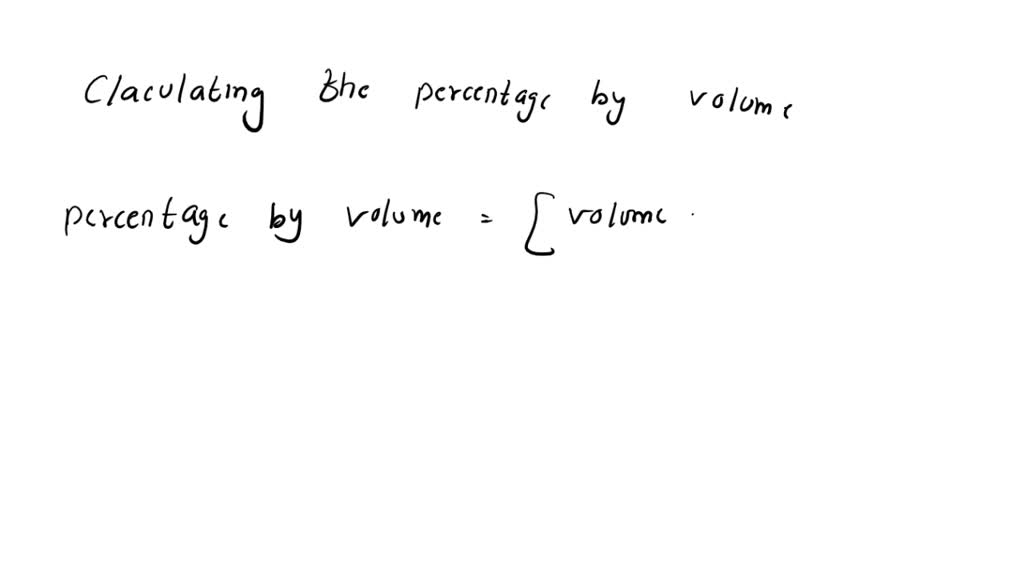 Claculating the percentage by volume
percentage by volume = [ volume